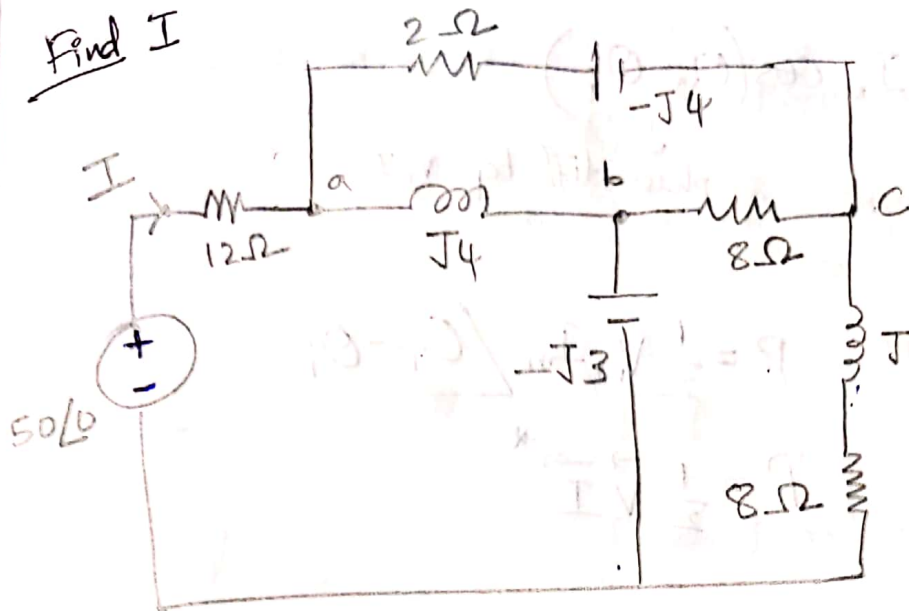 Find I
2 Ω
-J4
I
a
b
C
12Ω
J4
8Ω
+
-
-J3
J
50∠0
8Ω